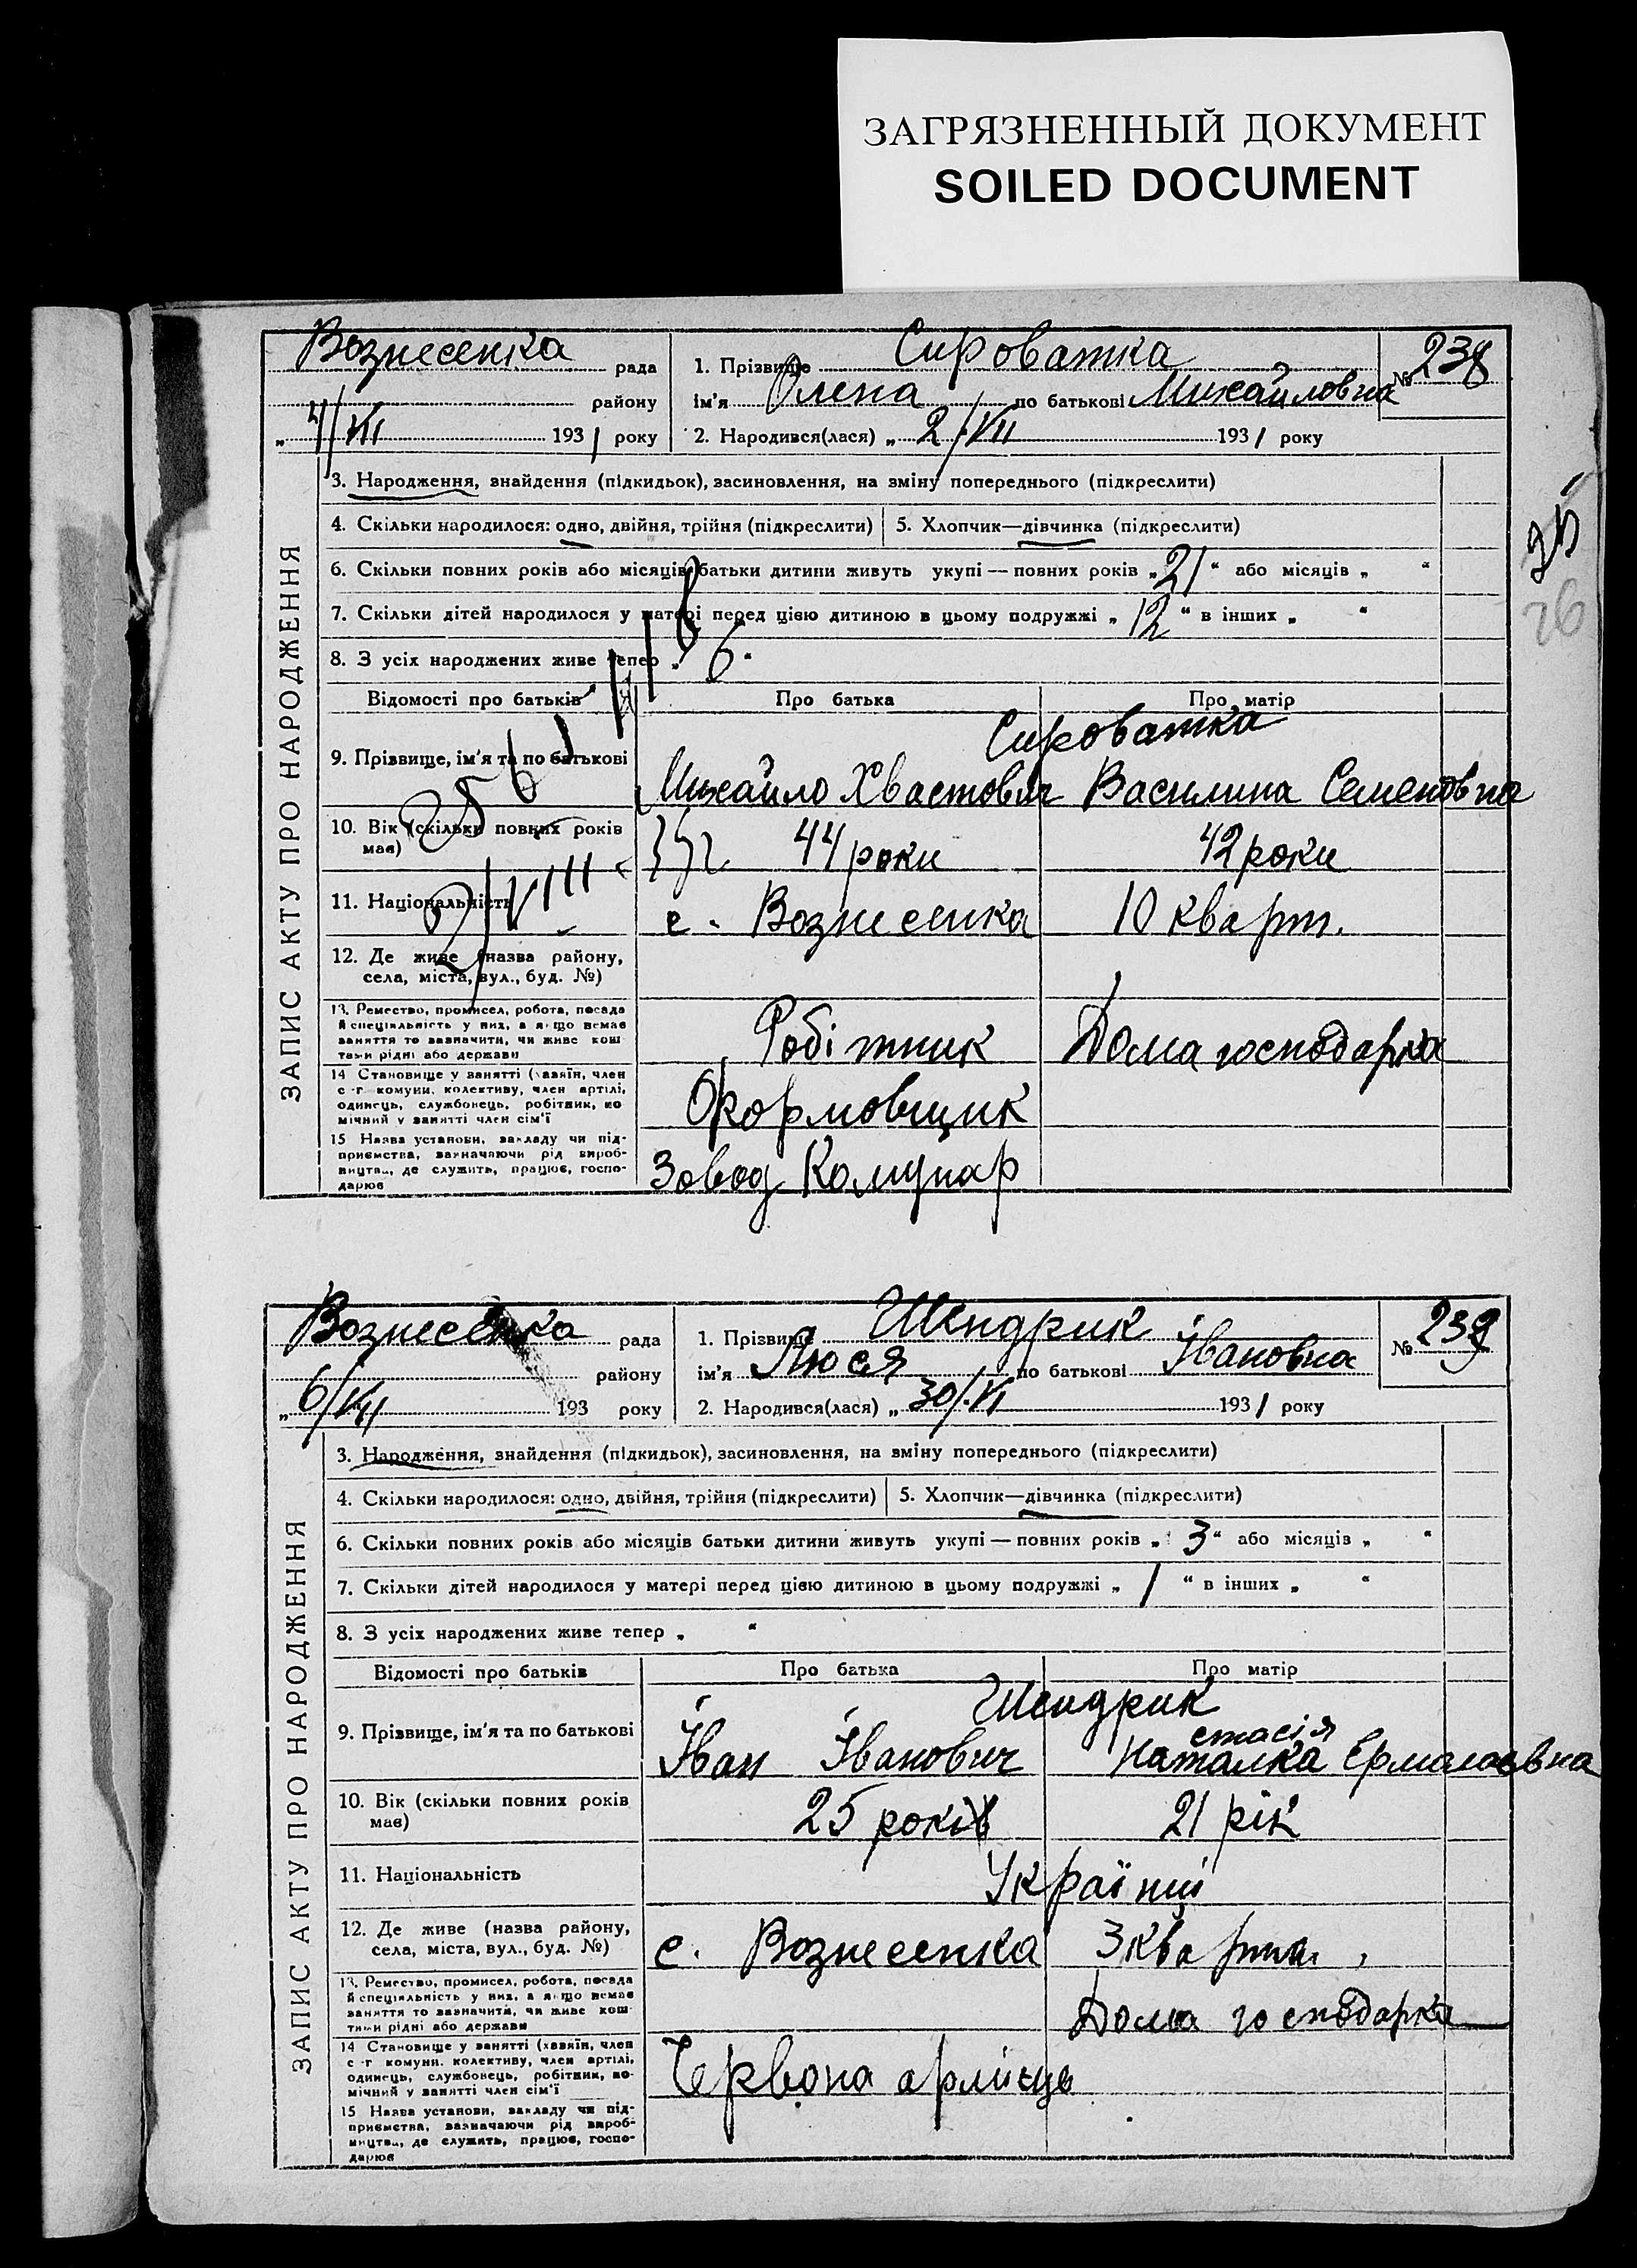 ЗАГРЯЗНЕННЫЙ ДОКУМЕНТ
SOILED DOCUMENT
ЗАПИС АКТУ ПРО НАРОДЖЕННЯ
Вознесенка рада
району
„ 4/VII 1931 року
1. Прізвище Сироватка
ім'я Олена по батькові Михайловна
2. Народився(лася) „ 2/VII 1931 року
№ 238
3. Народження, знайдення (підкидьок), засиновлення, на зміну попереднього (підкреслити)
4. Скільки народилося: одно, двійня, трійня (підкреслити) 5. Хлопчик—дівчинка (підкреслити)
6. Скільки повних років або місяців батьки дитини живуть укупі — повних років „ 21 “ або місяців „ “
7. Скільки дітей народилося у матері перед цією дитиною в цьому подружжі „ 12 “ в інших „ “
8. З усіх народжених живе тепер „ 6 “
26
Відомості про батьків Про батька Про матір
Сироватка
9. Прізвище, ім'я та по батькові Михайло Хвастович Василина Семеновна
10. Вік (скільки повних років
має) 44 роки 42 роки
11. Національність с. Вознесенка 10 кварт.
12. Де живе (назва району,
села, міста, вул., буд. №)
13. Ремество, промисел, робота, посада
й спеціяльність у них, а якщо немає
заняття то зазначити, чи живе кош
тами рідні або держави
Робітник Дома господарка
14 Становище у занятті (хазяїн, член
с-г комуни, колективу, член артілі,
одинець, службовець, робітник, по
мічний у занятті член сім'ї
Формовщик
15 Назва установи, закладу чи під-
приємства, зазначаючи рід вироб-
ництва, де служить, працює, госпо-
дарює
Завод Комунар
ЗАПИС АКТУ ПРО НАРОДЖЕННЯ
Вознесенка рада
району
„ 6/VII 193 року
1. Прізвище Шендрик
ім'я Люся по батькові Івановна
2. Народився(лася) „ 30/VI 1931 року
№ 239
3. Народження, знайдення (підкидьок), засиновлення, на зміну попереднього (підкреслити)
4. Скільки народилося: одно, двійня, трійня (підкреслити) 5. Хлопчик—дівчинка (підкреслити)
6. Скільки повних років або місяців батьки дитини живуть укупі — повних років „ 3 “ або місяців „ “
7. Скільки дітей народилося у матері перед цією дитиною в цьому подружжі „ 1 “ в інших „ “
8. З усіх народжених живе тепер „ “
Відомості про батьків Про батька Про матір
Шендрик
стасія
9. Прізвище, ім'я та по батькові Іван Іванович Наталка Ермолаевна
10. Вік (скільки повних років
має) 25 років 21 рік
11. Національність Українці
12. Де живе (назва району,
села, міста, вул., буд. №) с. Вознесенка 3 кварта
13. Ремество, промисел, робота, посада
й спеціяльність у них, а якщо немає
заняття то зазначити, чи живе кош
тами рідні або держави
Дома господарка
14 Становище у занятті (хазяїн, член
с-г комуни, колективу, член артілі,
одинець, службовець, робітник, по-
мічний у занятті член сім'ї
Червона армієць
15 Назва установи, закладу чи під-
приємства, зазначаючи рід вироб-
ництва, де служить, працює, госпо-
дарює